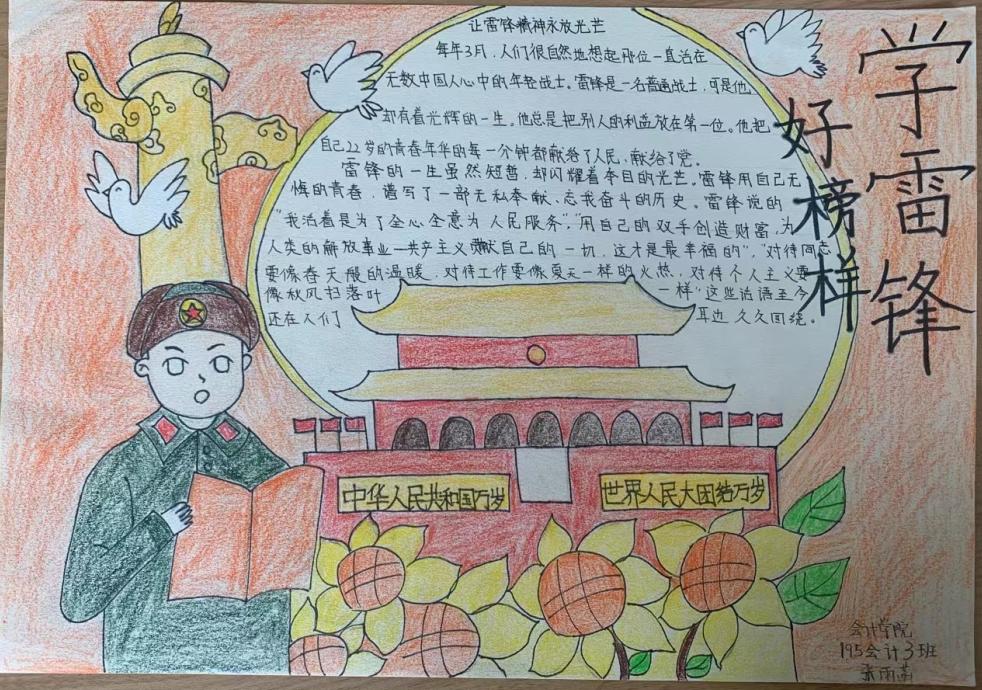 学雷锋
好榜样
让雷锋精神永放光芒
每年3月，人们很自然地想起那位一直活在
无数中国人心中的年轻战士。雷锋是一名普通战士，可是他
却有着光辉的一生。他总是把别人的利益放在第一位。他把
自己22岁的青春年华的每一个钟都献给了人民，献给了党。
雷锋的一生虽然短暂，却闪耀着夺目的光芒。雷锋用自己无
悔的青春，谱写了一部无私奉献、忘我奋斗的历史。雷锋说的
"我活着是为了全心全意为人民服务"，"用自己的双手创造财富，为
人类的解放事业—共产主义贡献自己的一切，这才是最幸福的"，"对待同志
要像春天般的温暖，对待工作要像夏天一样的火热，对待个人主义要
像秋风扫落叶一样"这些话语至今
还在人们耳边久久回绕。
中华人民共和国万岁
世界人民大团结万岁
会计学院
195会计3班
张雨